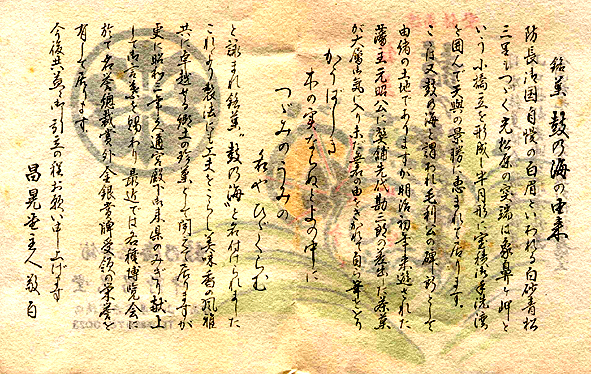 銘菓 鼓乃海の由来
防長海国自慢の白眉といわれる白砂青松
三里もつづく光松原の突端は象鼻ヶ岬と
いう小橋立を形成し半月形に室積湾御手洗湾
を囲んで天與の景勝に恵まれて居ります。
ここは又鼓の海と謂われ毛利公の碑所として
由緒の土地でありますが明治初年来遊された
藩主元昭公に弊舗先代勘二郎の差出した茶菓
が大層御気に入りまだ無名の由をきかれて自ら筆をとり
かりばしき
木の実ならねどよの中に
つづみのうみの
名やひびくらむ
と詠まれ銘菓〝鼓乃海〟と名付けられました
これより製法に工夫をこらし美味香の風雅
共に卓越せる郷土の珍菓として聞えて居りますが
更に昭和二十三年久邇宮殿下御来県のみぎり献上
して御言葉を賜わり最近では各種博覧会に
於て名誉総裁賞外金銀賞牌受領の栄誉を
有して居ります。
今後共益々御引立の程お願い申上げます
昌晃堂主人敬白